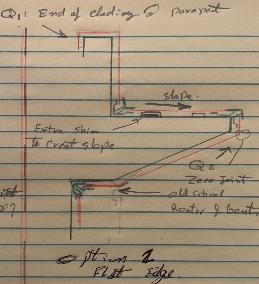 Q1: End of clading @ parapet
slope.
Extra shim
to creat slope
Q2
Zero joint
old school
Router &
Option 2
Flat Edge.